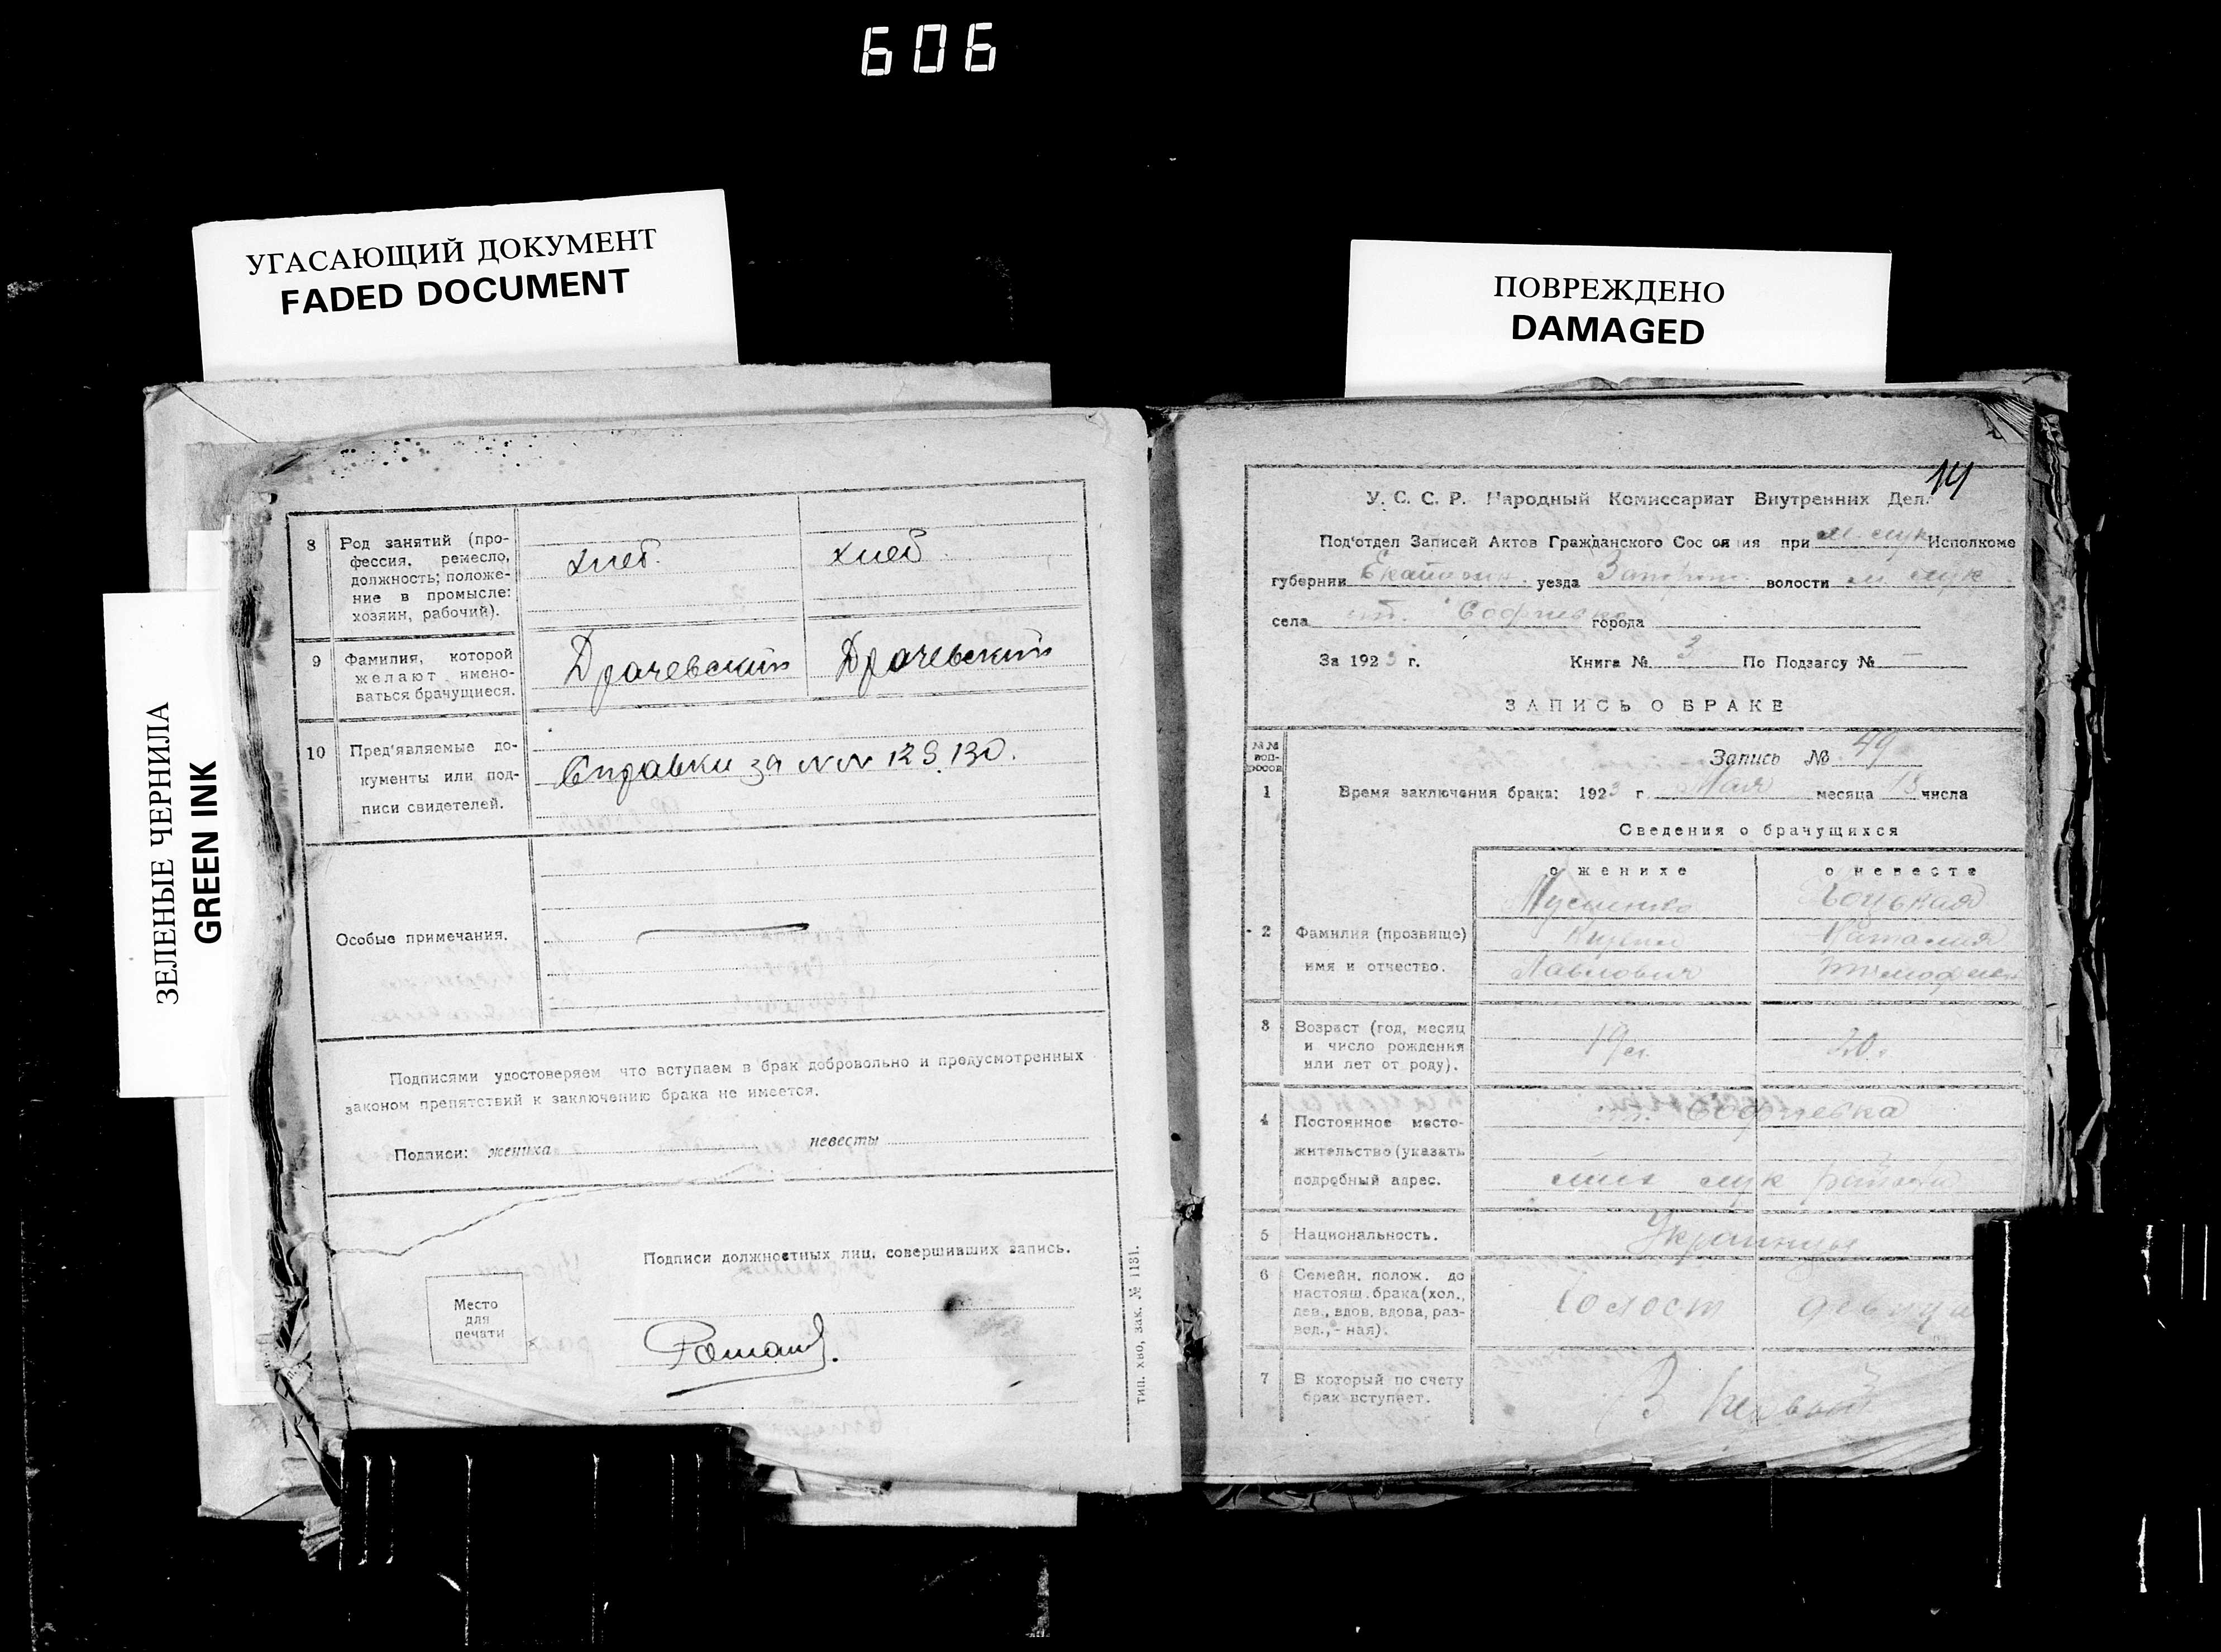 606
УГАСАЮЩИЙ ДОКУМЕНТ
FADED DOCUMENT
ПОВРЕЖДЕНО
DAMAGED
ЗЕЛЕНЫЕ ЧЕРНИЛА
GREEN INK
8 Род занятий (про-
фессия, ремесло,
должность; положе-
ние в промысле:
хозяин, рабочий).
хлеб. хлеб.
9 Фамилия, которой
желают имено-
ваться брачущиеся.
Драчевский Драчевский
10 Пред'являемые до-
кументы или под-
писи свидетелей.
Справки за NN 129. 130.
Особые примечания.
Подписями удостоверяем что вступаем в брак добровольно и предусмотренных
законом препятствий к заключению брака не имеется.
Подписи: жениха невесты
Подписи должностных лиц, совершивших запись.
Место
для
печати
тип. хво, зак. № 1131.
14
У. С. С. Р. Народный Комиссариат Внутренних Дел.
Под'отдел Записей Актов Гражданского Сос оя ия при Исполкоме
губернии уезда волости
села ст. Софиевка города
За 1923 г. Книга № 3 По Подзагсу № —
ЗАПИСЬ О БРАКЕ
№№
воп-
росов
Запись № 49
1 Время заключения брака: 1923 г. Мая месяца 13 числа
Сведения о брачущихся
о женихе о невесте
2 Фамилия (прозвище)
имя и отчество.
Наталия
Павлович
3 Возраст (год, месяц
и число рождения
или лет от роду).
19 л. 20.
4 Постоянное место-
жительство (указать
подробный адрес.
ст. Софиевка
района
5 Национальность.
Украинцы
6 Семейн. полож. до
настоящ. брака (хол.,
дев., вдов, вдова, раз-
вед., - ная).
холост девица
7 В который по счету
брак вступает.
В первый